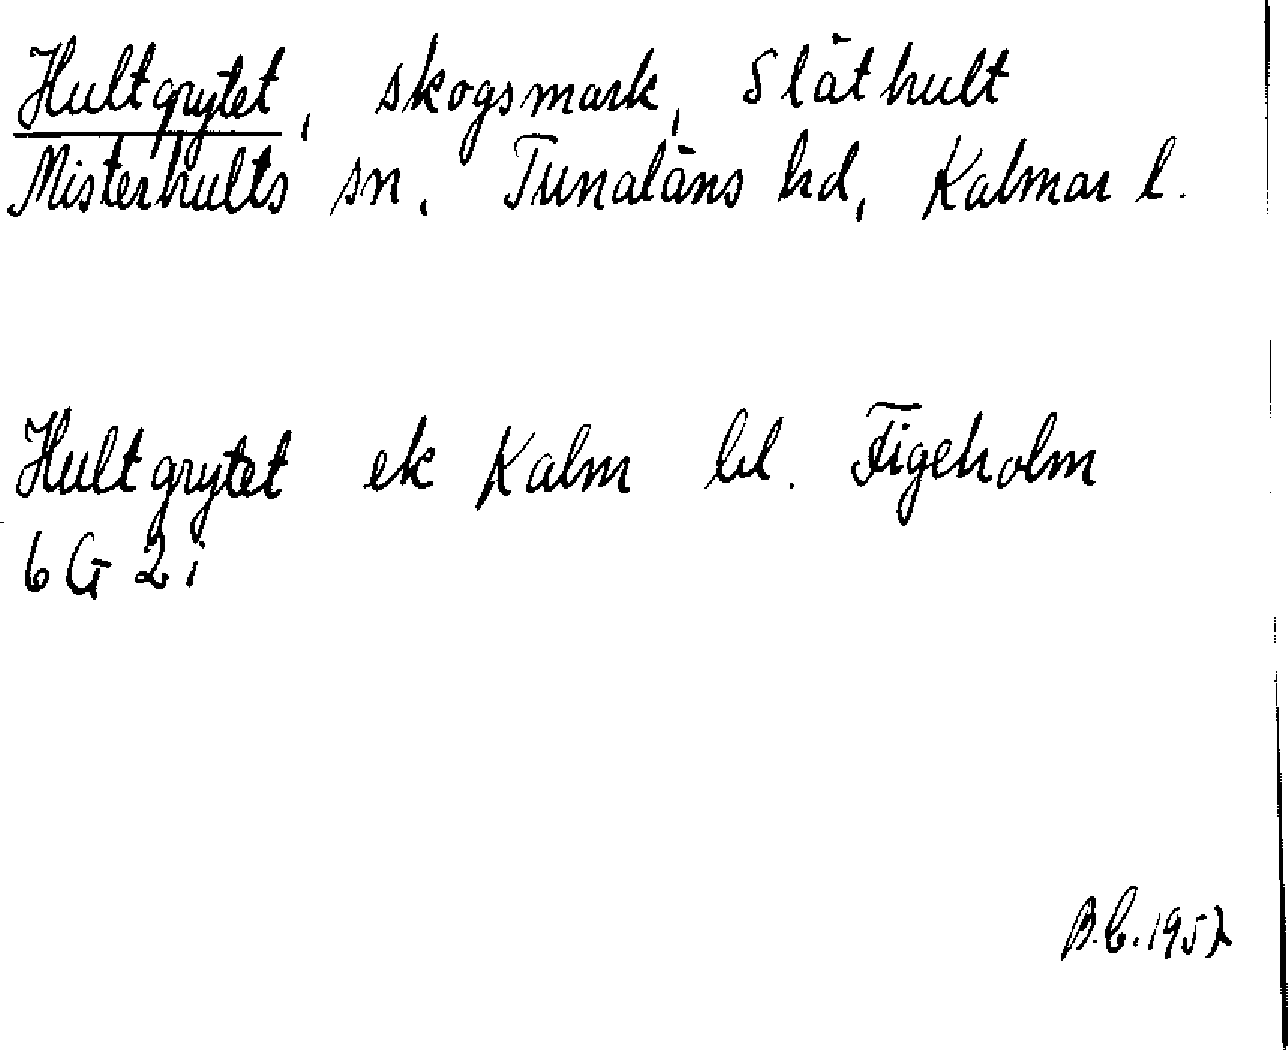 Hultgrytet, skogsmark, Släthult
Misterhults sn. Tunaläns hd, Kalmar l.
Hultgrytet ek Kalm bl. Figeholm
6 G 2 i
B.C. 1957